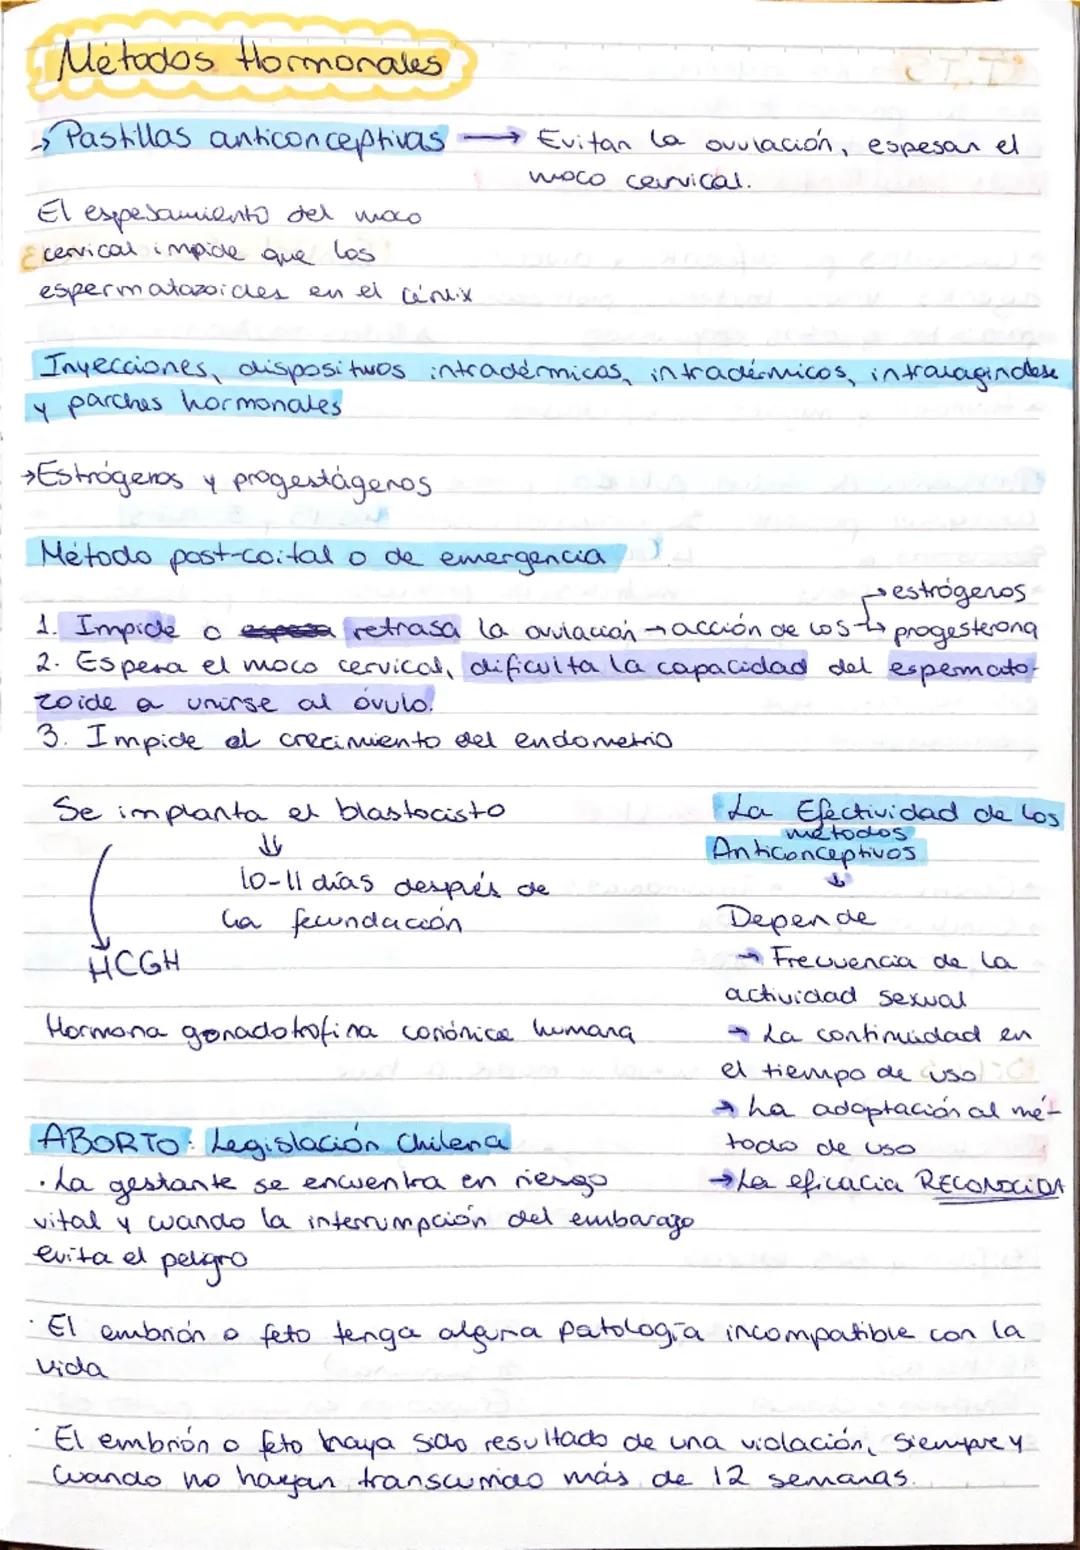 Métodos Hormonales
→ Pastillas anticonceptivas → Evitan la ovulación, espesan el
moco cervical.
El espesamiento del moco
cervical impide que los
espermatozoides en el cérvix
Inyecciones, dispositivos intradérmicos, intradérmicos, intravaginales
y parches hormonales
→ Estrógenos y progestágenos
Método post-coital o de emergencia
1. Impide o retrasa la ovulación → acción de los → estrógenos
→ progesterona
2. Espesa el moco cervical, dificulta la capacidad del espermato-
zoide a unirse al óvulo.
3. Impide el crecimiento del endometrio
Se implanta el blastocisto
⇓
10-11 días después de
la fecundación
HCGH
Hormona gonadotrofina coriónica humana
La Efectividad de los
métodos
Anticonceptivos
↓
Depende
→ Frecuencia de la
actividad sexual
→ La continuidad en
el tiempo de uso
→ La adaptación al mé-
todo de uso
→ La eficacia RECONOCIDA
ABORTO: Legislación Chilena
· La gestante se encuentra en riesgo
vital y cuando la interrumpción del embarazo
evita el peligro
· El embrión o feto tenga alguna patología incompatible con la
vida
· El embrión o feto haya sido resultado de una violación, siempre y
cuando no hayan transcurrido más de 12 semanas.